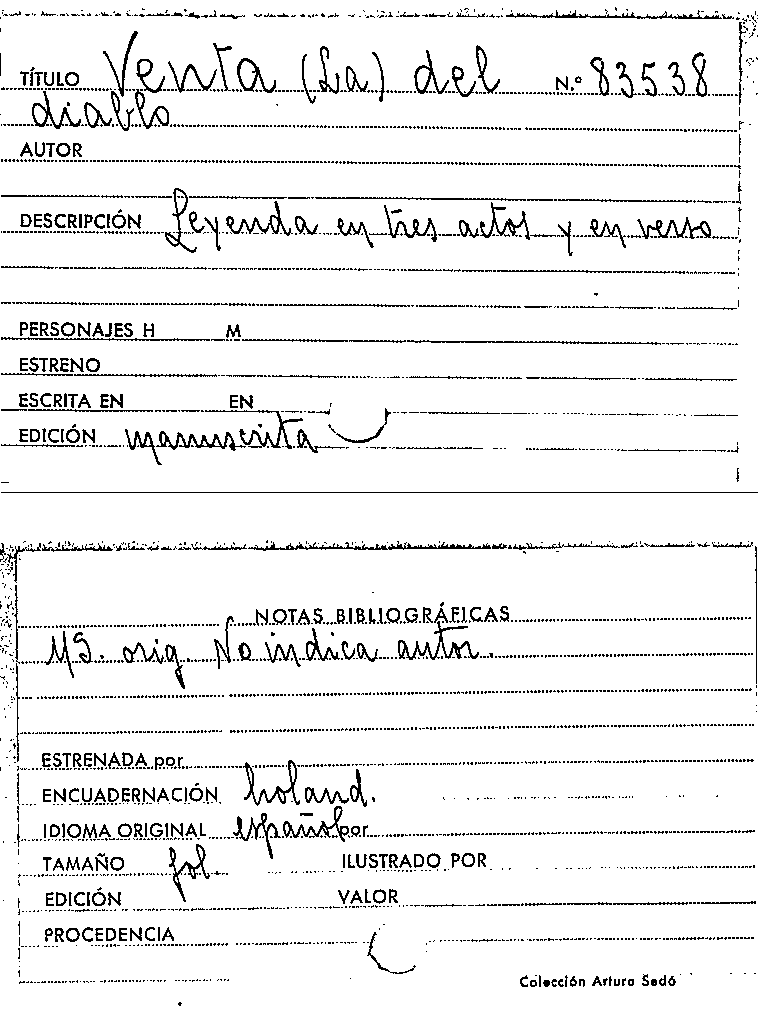 TÍTULO Venta (La) del N.º 83538
diablo
AUTOR
DESCRIPCIÓN Leyenda en tres actos y en verso
PERSONAJES H M
ESTRENO
ESCRITA EN EN
EDICIÓN manuscrita
NOTAS BIBLIOGRÁFICAS
MS. orig. No indica autor.
ESTRENADA por
ENCUADERNACIÓN holand.
IDIOMA ORIGINAL español por
TAMAÑO fol. ILUSTRADO POR
EDICIÓN VALOR
PROCEDENCIA
Colección Arturo Sedó